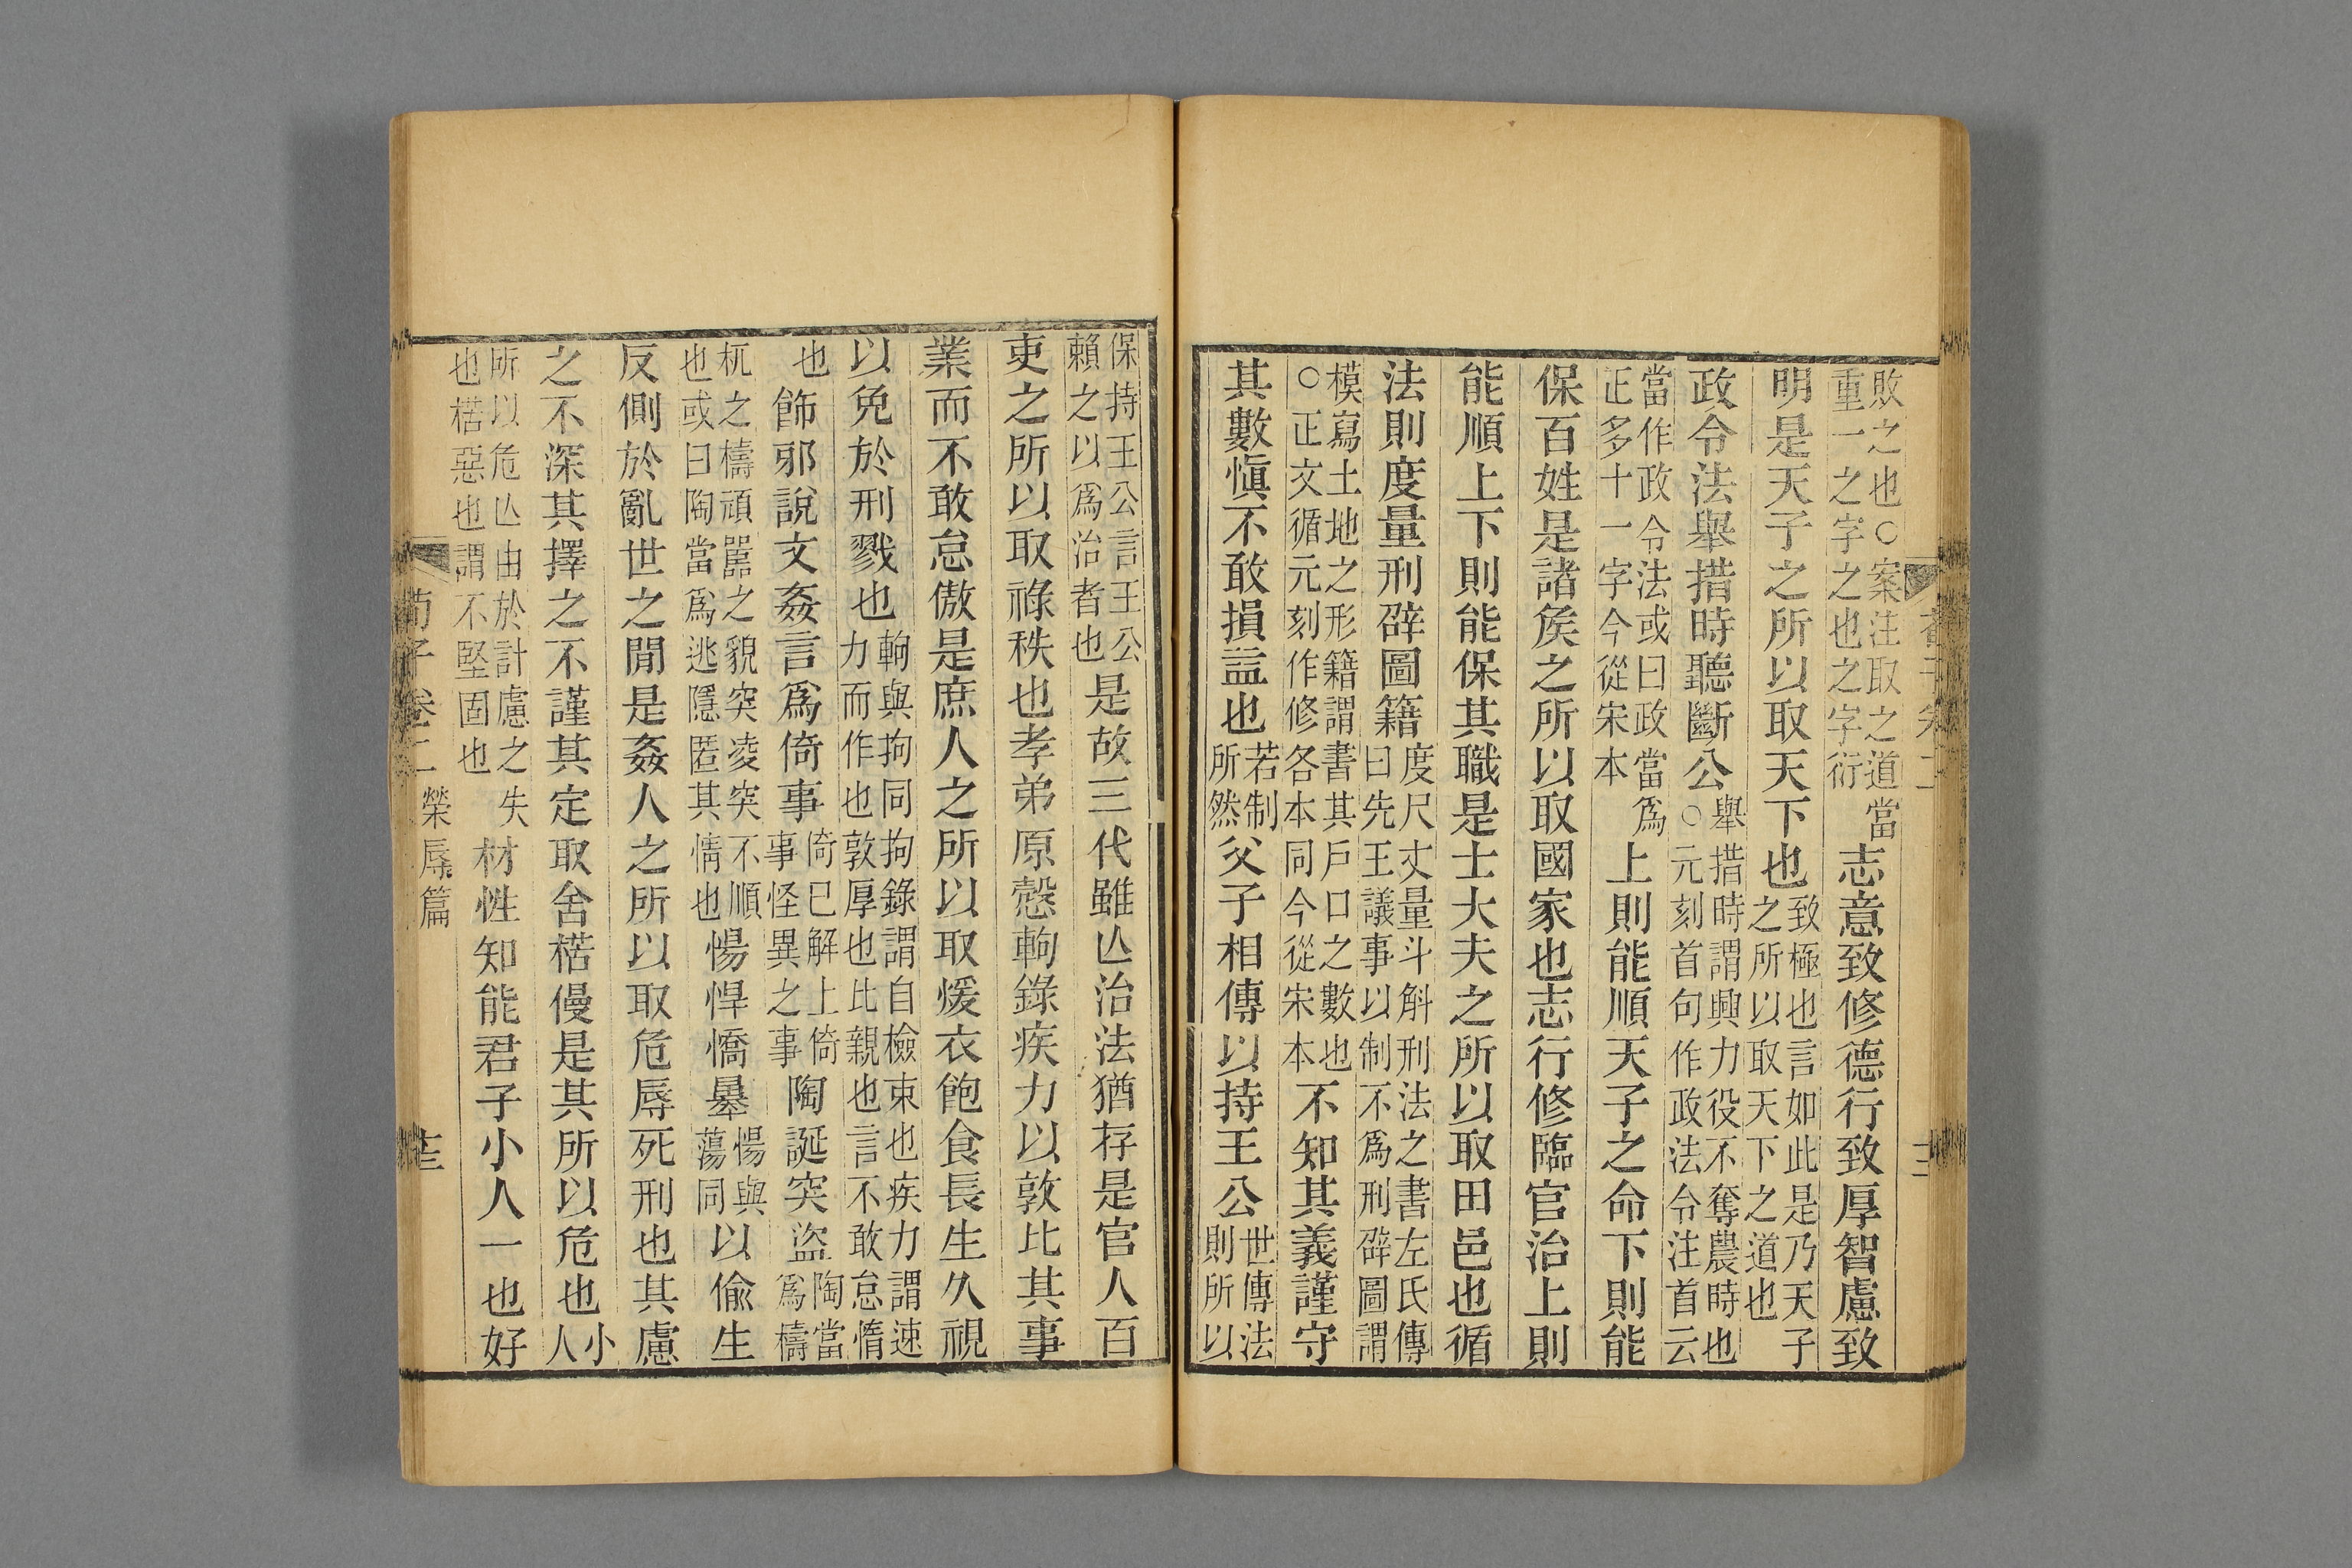 敗之也○案注取之道當重一之字之也之字衍志意致修德行致厚智慮致
明是天子之所以取天下也致極也言如此是乃天子之所以取天下之道也
政令法舉措時聽斷公舉措時謂興力役不奪農時也○元刻首句作政法令注首云
當作政令法或曰政當爲正多十一字今從宋本上則能順天子之命下則能
保百姓是諸矦之所以取國家也志行修臨官治上則
能順上下則能保其職是士大夫之所以取田邑也循
法則度量刑辟圖籍度尺丈量斗斛刑法之書左氏傳曰先王議事以制不爲刑辟圖謂
模寫土地之形籍謂書其戶口之數也○正文循元刻作修各本同今從宋本不知其義謹守
其數愼不敢損益也若制所然父子相傳以持王公世傳法則所以
保持王公言王公賴之以爲治者也是故三代雖亾治法猶存是官人百
吏之所以取祿秩也孝弟原愨軥錄疾力以敦比其事
業而不敢怠傲是庶人之所以取煖衣飽食長生久視
以免於刑戮也軥與拘同拘錄謂自檢束也疾力謂速力而作也敦厚也比親也言不敢怠惰
也飾邪說文姦言爲倚事倚已解上倚事怪異之事陶誕突盜陶當爲檮
杌之檮頑嚚之貌突凌突不順也或曰陶當爲逃隱匿其情也惕悍憍暴惕與蕩同以偸生
反側於亂世之閒是姦人之所以取危辱死刑也其慮
之不深其擇之不謹其定取舍楛僈是其所以危也小人
所以危亾由於計慮之失也楛惡也謂不堅固也材性知能君子小人一也好
荀子卷二 榮辱篇 十三